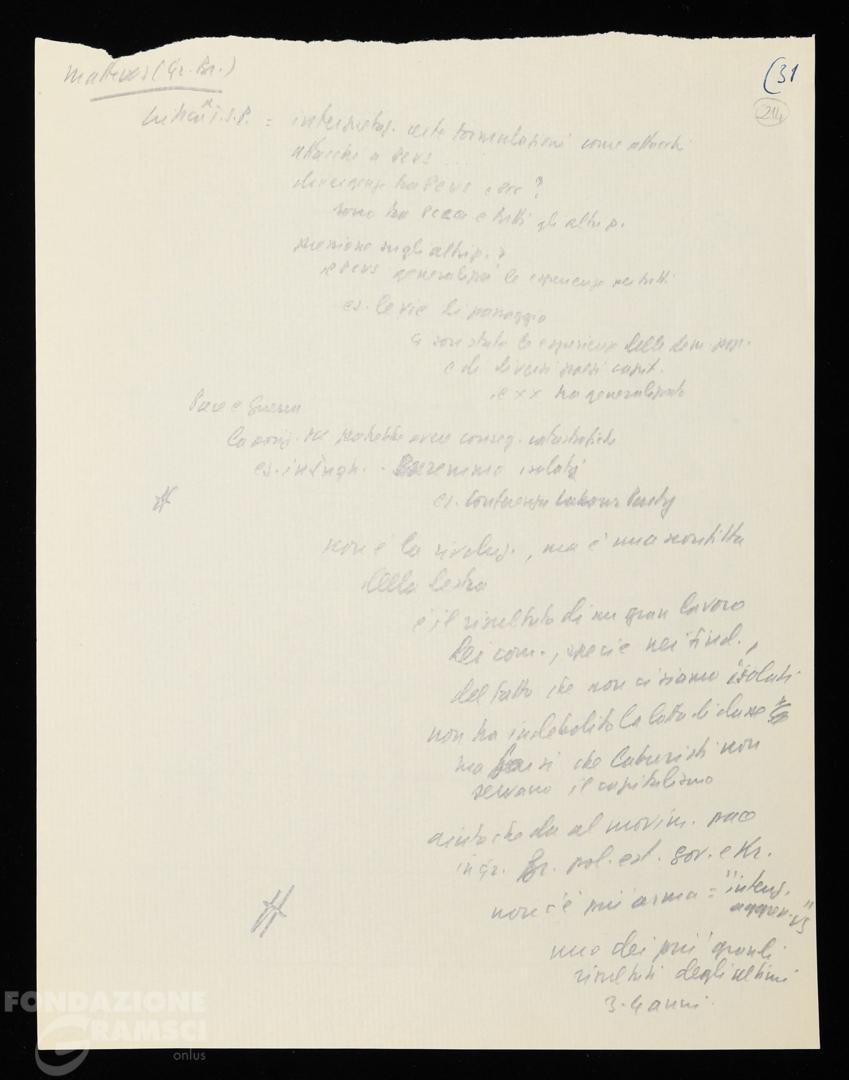 Mattews (Gr. Br.)
(31
214
= interpretaz. certe formulazioni come attacchi
attacchi a PCUS ...
divergenze tra PCUS e PCC ?
sono tra PCC e tutti gli altri p.
pressione sugli altri p. ?
il PCUS generalizzò le esperienze per tutti
es. le vie di passaggio
ci sono state le esperienze delle dem. pop.
e di diversi paesi capit.
il XX ha generalizzato
Pace e Guerra
La posiz. PCC potrebbe avere conseg. catastrofiche
es. in Ingh. - saremmo isolati
es. Conferenza Labour Party
non è la rivoluz., ma è una sconfitta
della destra
è il risultato di un gran lavoro
dei com., specie nei sind.,
del fatto che non ci siamo isolati
non ha indebolito la lotta di classe
ma fa sì che laburisti non
servano il capitalismo
aiuto che dà al movim. pace
in Gr. Br. pol. est. Gov. e Kr.
non c'è più arma = "intenz.
aggres. US"
uno dei più grandi
risultati degli ultimi
3-4 anni.
FONDAZIONE
GRAMSCI
onlus